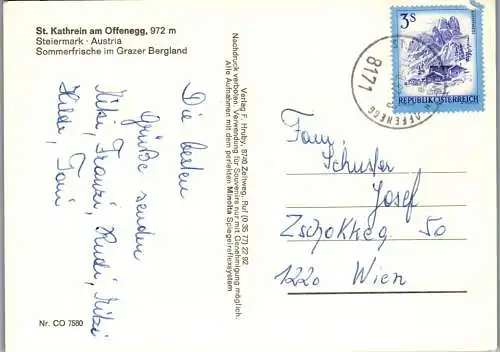 St. Kathrein am Offenegg, 972 m
Steiermark · Austria
Sommerfrische im Grazer Bergland
Die besten
Grüße senden
Mitzi, Franzi, Rudi, Mitzi
Hildi, Toni
Nr. CO 7580
Verlag F. Hruby, 8740 Zeltweg, Ruf (0 35 77) 22 92
Alle Aufnahmen mit dem perfekten Minolta Spiegelreflexsystem
Nachdruck verboten. Verwendung für Souvenirs nur mit Genehmigung möglich.
3 S
REPUBLIK ÖSTERREICH
8171
OFFENEGG
Fam.
Schuster
Josef
Zschokkeg 50
1220 Wien